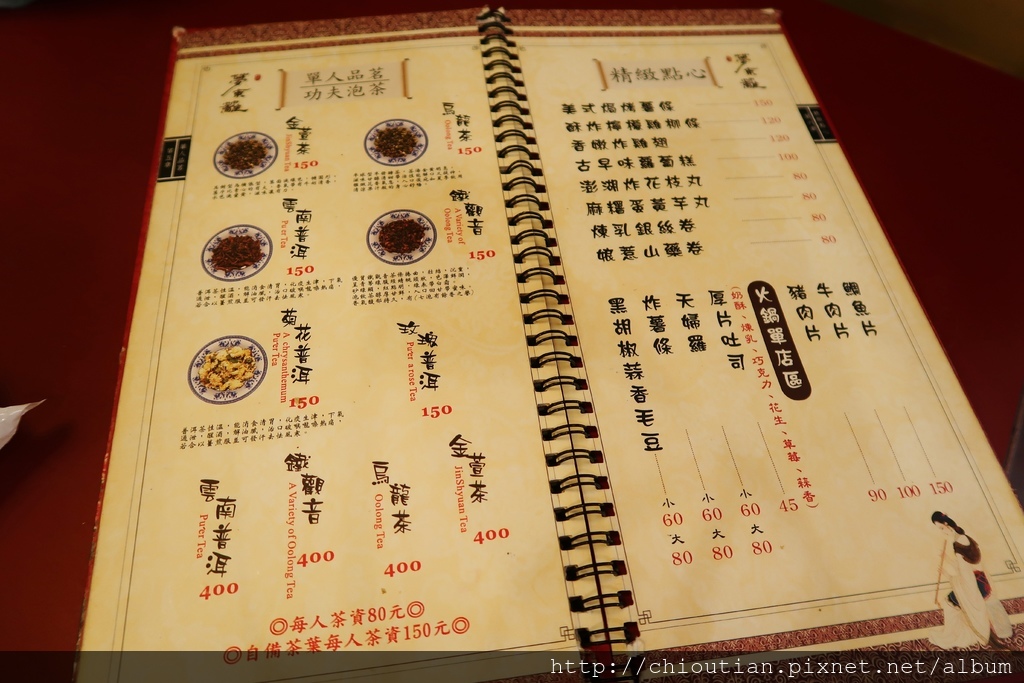 夢東籬
單人品茗
功夫泡茶
烏龍茶
Oolong Tea
150
金萱茶
JinShyuan Tea
150
鐵觀音
A Variety of
Oolong Tea
150
雲南普洱
Pu'er Tea
150
玫瑰普洱
Pu'er a rose Tea
150
菊花普洱
A chrysanthemum
Pu'er Tea
150
金萱茶
JinShyuan Tea
400
烏龍茶
Oolong Tea
400
鐵觀音
A Variety of Oolong Tea
400
雲南普洱
Pu'er Tea
400
◎每人茶資80元◎
◎自備茶葉每人茶資150元◎
夢東籬
精緻點心
美式焗烤薯條 150
酥炸檸檬雞柳條 120
香嫩炸雞翅 120
古早味蘿蔔糕 100
澎湖炸花枝丸 80
麻糬蛋黃芋丸 80
煉乳銀絲卷 80
娘惹山藥卷 80
鯛魚片 150
牛肉片 100
豬肉片 90
火鍋單店區
(奶酥、煉乳、巧克力、花生、草莓、蒜香)
厚片吐司 45
天婦羅 小60 大80
炸薯條 小60 大80
黑胡椒蒜香毛豆 小60 大80
http://chioutian.pixnet.net/album